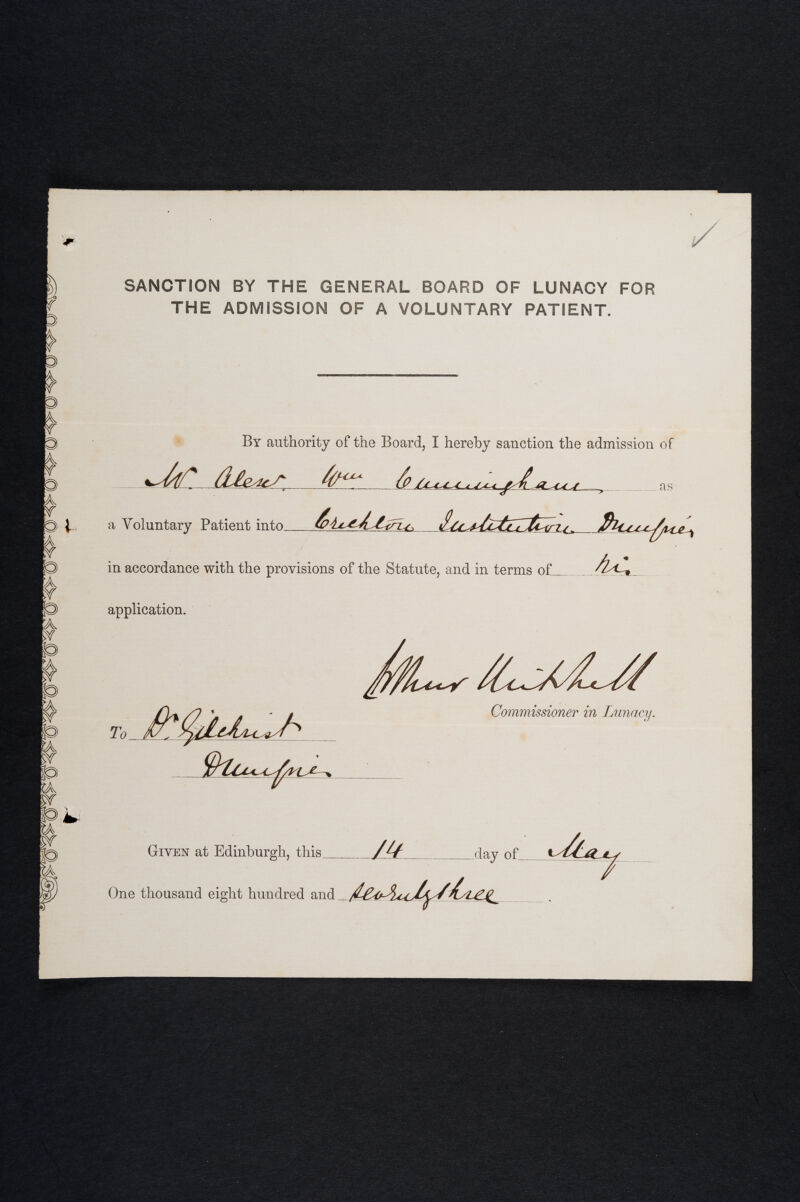 SANCTION BY THE GENERAL BOARD OF LUNACY FOR
THE ADMISSION OF A VOLUNTARY PATIENT.
By authority of the Board, I hereby sanction the admission of
Mr. Alexr. Wm Cunningham as
a Voluntary Patient into Crichton Institution Dumfries
in accordance with the provisions of the Statute, and in terms of his
application.
Arthur Mitchell
Commissioner in Lunacy.
To Dr. Gilchrist
Dumfries
Given at Edinburgh, this 14 day of May
One thousand eight hundred and seventy three.